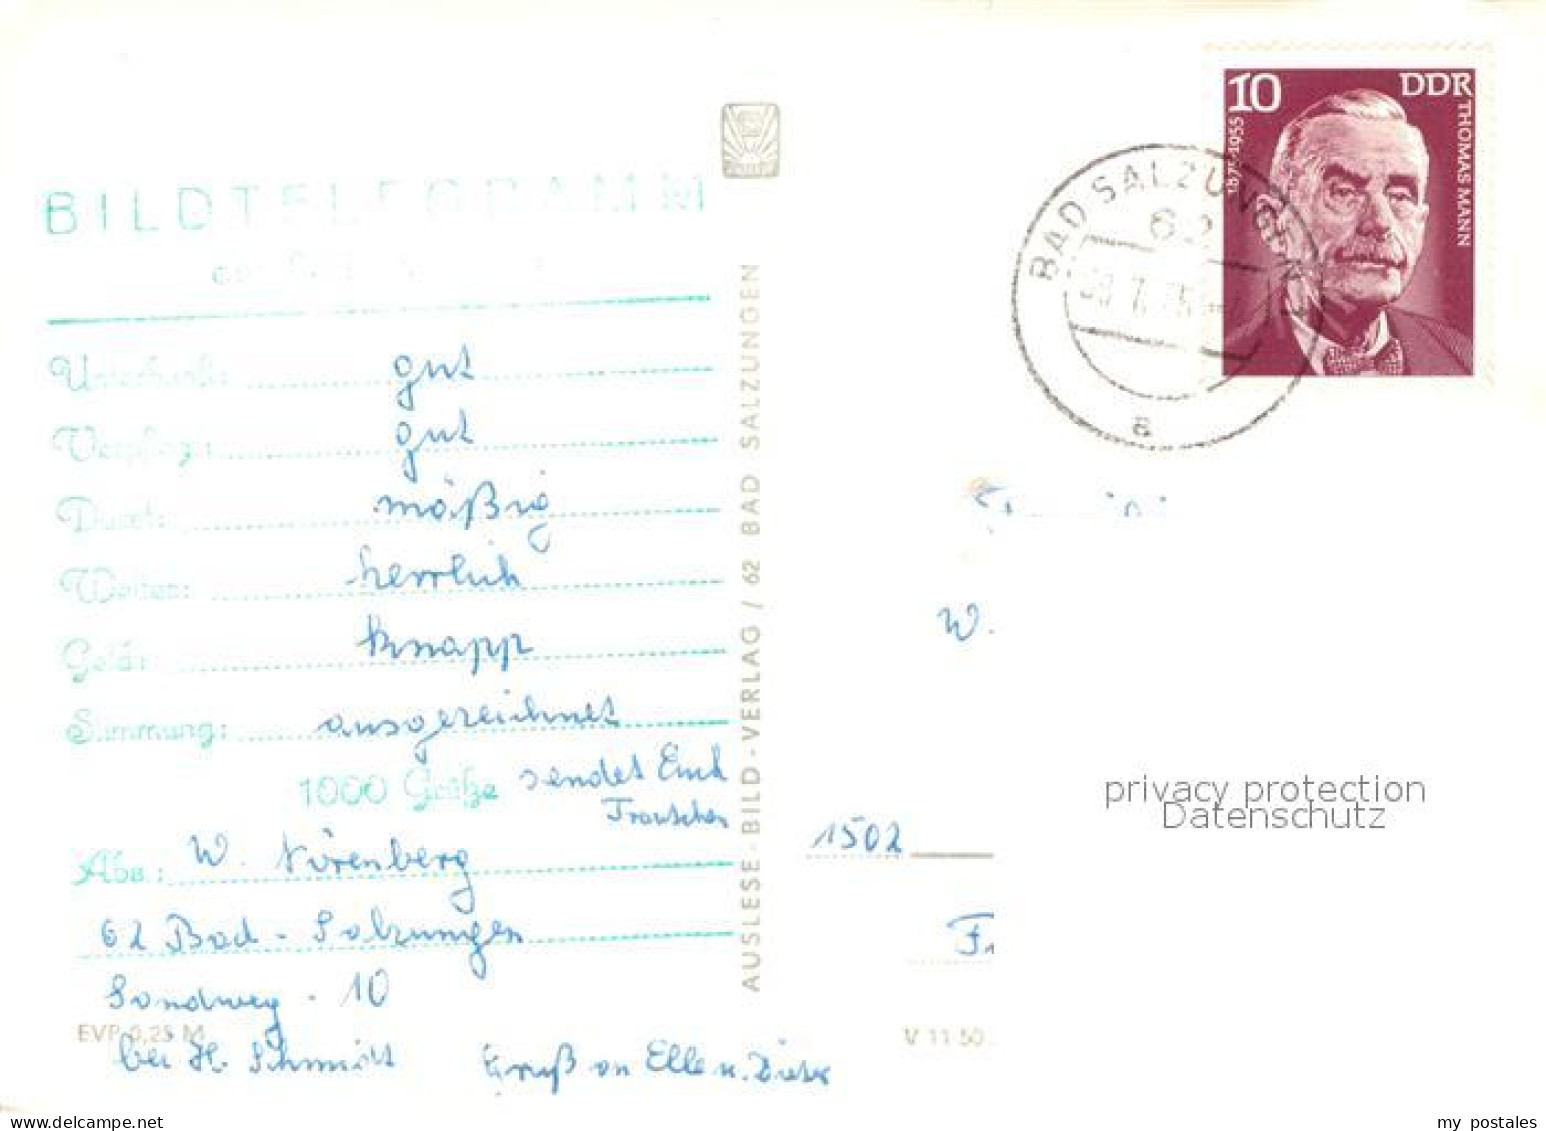 BILDTELEGRAMM
Unterkunft: gut
Verpflegung: gut
Durst: mäßig
Wetter: herrlich
Geld: knapp
Stimmung: ausgezeichnet
1000 Grüße sendet Euch
Trautchen
Abs.: W. Nürenberg
62 Bad-Salzungen
Sandweg - 10
bei H. Schmidt
Gruß an Elle u. Dieter
EVP 0,25 M
AUSLESE-BILD-VERLAG / 62 BAD SALZUNGEN
10 DDR
THOMAS MANN
1875-1955
BAD SALZUNGEN 1
62
a
W.
1502
V 11 50
privacy protection
Datenschutz
my postales